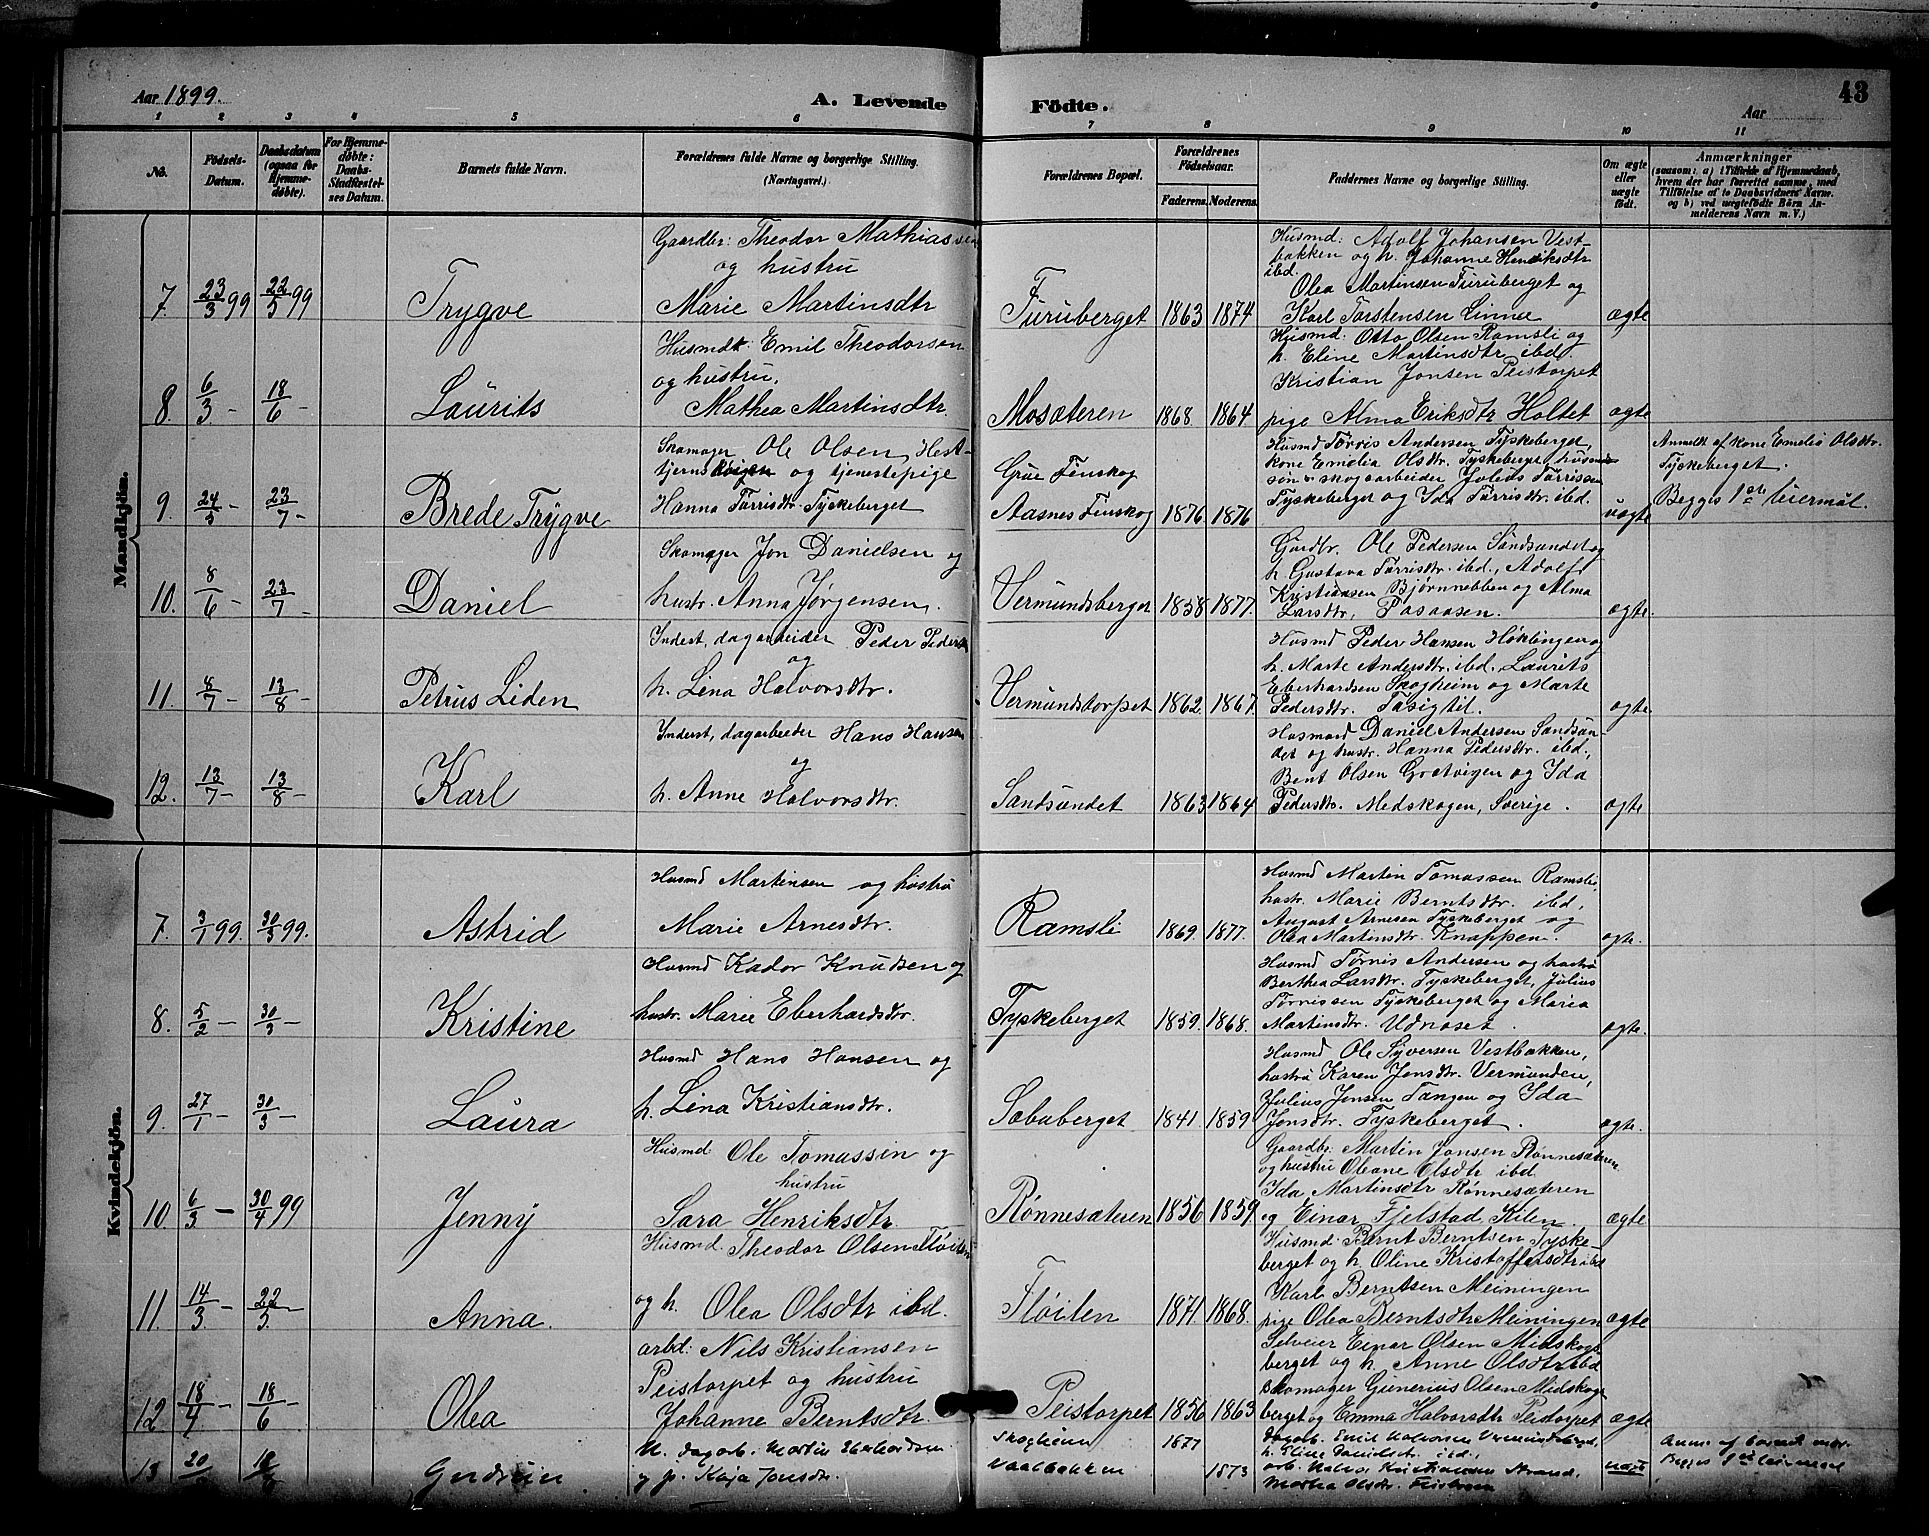 Aar 1899.
A. Levende Födte.
Aar
43
1 2 3 4 5 6 7 8 9 10 11
No.
Födsels-Datum.
Daabsdatum (ogsaa for Hjemmedøbte).
For Hjemmedøbte: Daabs-Stadfæstelses Datum.
Barnets fulde Navn.
Forældrenes fulde Navne og borgerlige Stilling.
(Næringsvei.)
Forældrenes Bopæl.
Forældrenes Födselsaar.
Faderens. Moderens.
Faddernes Navne og borgerlige Stilling.
Om ægte eller uægte født.
Anmærkninger
(saasom: a) i Tilfælde af Hjemmedaab,
hvem der har forrettet samme, med
Tilføielse af to Daabsvidners Navne.
og b) ved uægtefødte Börn Anmelderens Navn m. V.)
Mandkjön.
Gaardbr: Theodor Mathiassen
og hustru
7. 23/3 99 22/5 99 Trygve Marie Martinsdtr Furuberget 1863 1874
Husmd: Adolf Johansen Vest-
bakken og h. Johanne Henriksdtr
ibd.
Olea Martinsen Furuberget og
Karl Torstensen Linna ægte
Husmdt: Emil Theodorsen
og hustru,
8. 6/3 - 18/6 - Laurits Mathea Martinsdtr Mosæteren 1868 1864
Husmd: Otto Olsen Ramsli og
h. Eline Martinsdtr ibd.
Kristian Jonsen Peistorpet
pige Alma Eriksdtr Holtet ægte
Skomager Ole Olsen, Hest-
tjernskoigen og tjenestepige
9. 24/5 - 23/7 - Brede Trygve Hanna Tørrisdtr. Tyskeberget
Grue Finskog
Aasnes Finskog 1876 1876
Husmd Tørris Andersen Tyskeberget,
kone Emelia Olsdtr. Tyskeberget,
søn skogarbeider Julius Tørrisen
Tyskeberget og Ida Tørrisdtr. ibd. uægte
Anmeldt af kone Emelia Olsdtr.
Tyskeberget.
Begges 1ste leiermål.
Skomager Jon Danielsen og
10. 8/6 - 23/7 - Daniel hustr. Anna Jørgensen. Vermundsberget 1858 1877.
Gårdbr. Ole Pedersen Sandsundet og
h. Gustava Tørrisdtr. ibd., Adolf
Kristiansen Bjørnnebben og Alma
Larsdtr, Pasaasen. ægte.
Inderst, dagarbeider Peder Peders
og
11. 8/7 - 13/8 - Petrus Liden h. Lina Halvorsdtr. Vermundstorpet 1862 1867.
Husmd Peder Hansen Høklingen og
h. Marte Andersdtr. ibd. Laurits
Eberhardsen Skogheim og Marte
Pedersdtr. Fasigtil. ægte.
Inderst, dagarbeider Hans Hansen
og
12. 13/7 - 13/8 - Karl h. Anne Halvorsdtr. Sandsundet 1863 1864
Husmand Daniel Andersen Sandsun-
det og hustr. Hanna Pedersdtr. ibd.,
Bent Olsen Grætvigen og Ida
Pedersdtr. Medskogen, Sverige. ægte
Kvindekjön.
Husmd Martinsen og hustru
7. 3/1 99. 30/3 99. Astrid Marie Arnesdtr. Ramsli 1869. 1877.
Husmd Martin Tomassen Ramsli,
hustr. Marie Berntsdtr. ibd,
August Arnesen Tyskeberget og
Olea Martinsdtr. Knappen. ægte.
Husmd Kador Knudsen og
8. 5/2 - 30/3 - Kristine hustr. Marie Eberhardsdtr. Tyskeberget 1859. 1868.
Husmd Tørris Andersen og hustru
Berthea Larsdtr. Tyskeberget, Julius
Tørrissen Tyskeberget og Maria
Martinsdtr. Udnaset. ægte.
Husmd Hans Hansen og
9. 27/1 - 30/3 - Laura h. Lina Kristiansdtr. Sæbuberget 1841 1859
Husmd Ole Syversen Vestbakken,
hustru Karen Jonsdtr. Vermunden,
Julius Jensen Tangen og Ida
Jonsdtr. Tyskeberget. ægte.
Husmd Ole Tomassin og
hustru
10. 6/3 - 30/4 99 Jenny Sara Henriksdtr. Rønnesæteren 1856 1859
Gaardbr. Martin Jonsen Rønnesæteren
og hustru Oleane Olsdtr ibd
Ida Martinsdtr Rønnesæteren
og Einar Fjelstad Kilen. ægte
Husmd. Theodor Olsen Fløiten
11. 14/3 - 22/5 - Anna. og h. Olea Olsdtr ibd. Fløiten 1871 1868.
Husmd. Bernt Berntsen Tyske-
berget og h. Oline Kristoffersdtr ibd
Karl Berntsen Meiningen
pige Olea Berntsdtr Meiningen ægte
arbd: Nils Kristiansen
Peistorpet og hustru
12 18/4 - 18/6 - Olea Johanne Berntsdtr. Peistorpet 1856 1863
Selveier Einar Olsen Midskogs-
berget og h. Anne Olsdtr ibd
Skomager Gunerius Olsen Midskogs
berget og Emma Halvorsdtr Peistorpet ægte
13 20/ 18/6 Gudrun U. dagarb. Martin Eberhardsen
og p. Kaja Jonsdtr.
Skogheim 1877
Vaalbakken 1873
Dagarb. Emil Halvorsen Vermundsberget,
h. Eline Danielsdt. ibd.,
Kristiansen Strand,
Martha Olsdtr. uægte
Anm. af barnets mor.
Begges 1ste leiermaal